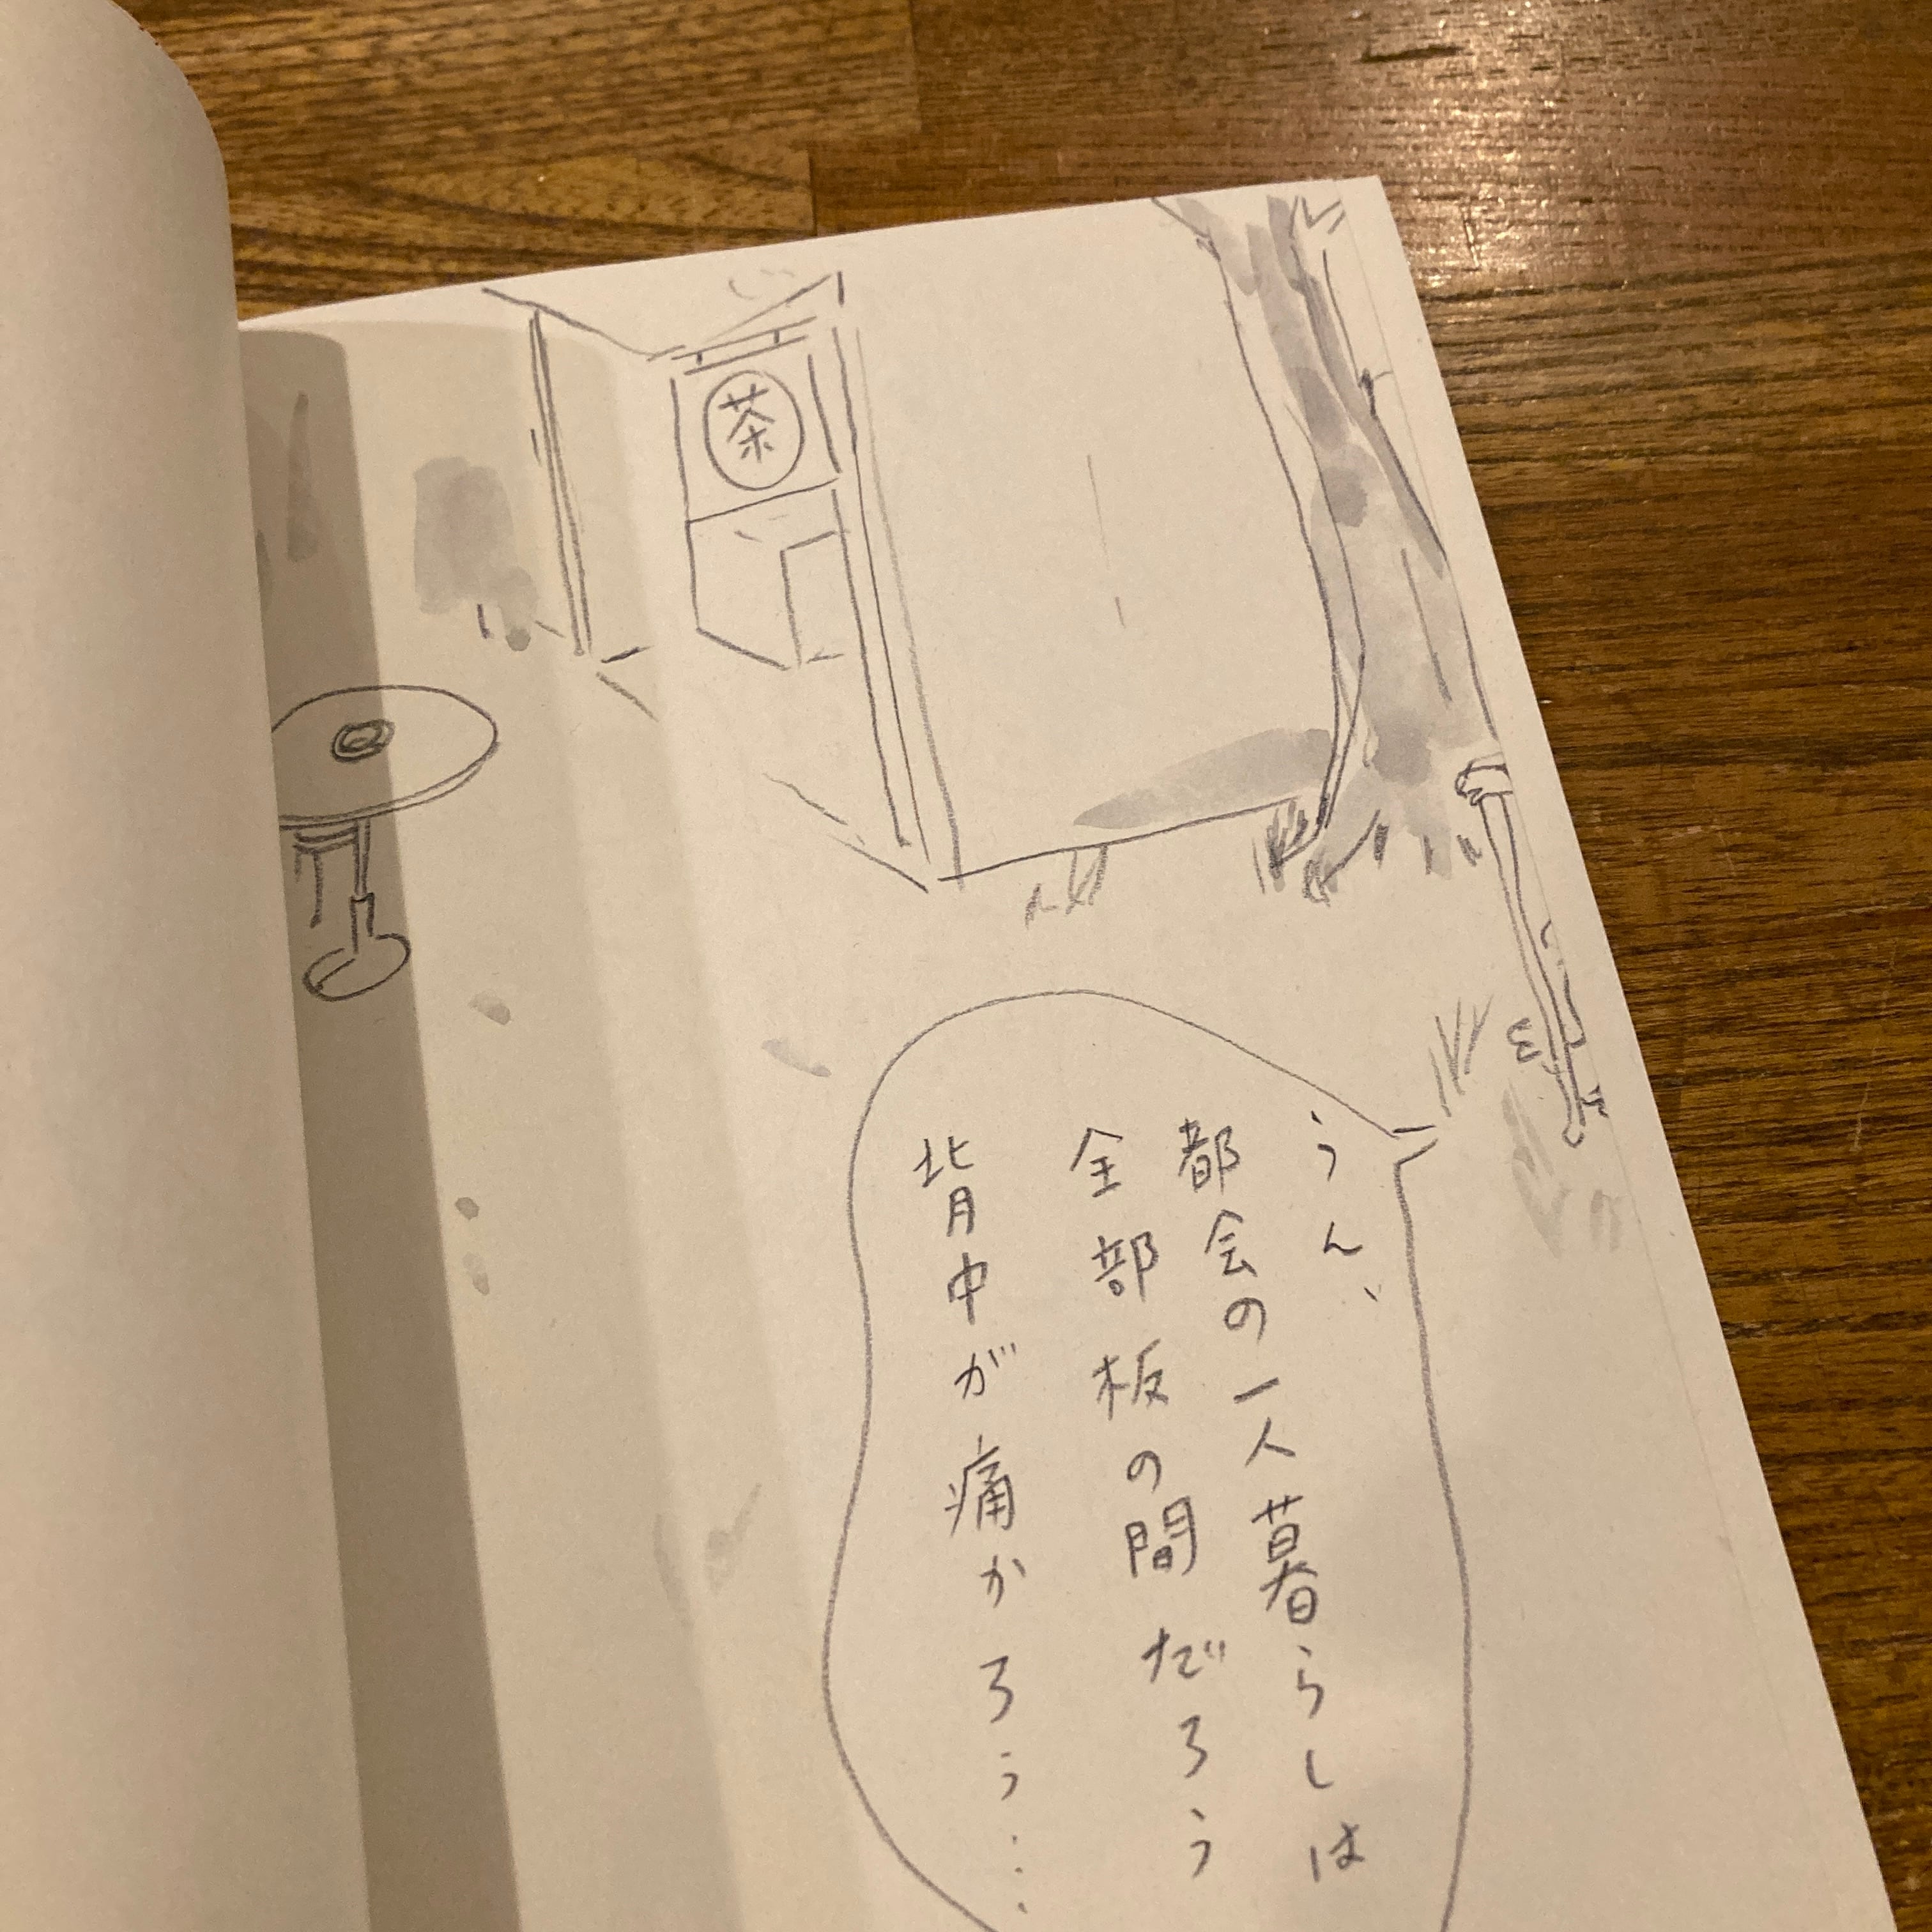 茶
うん、
都会の一人暮らしは
全部板の間だろう
背中が痛かろう…